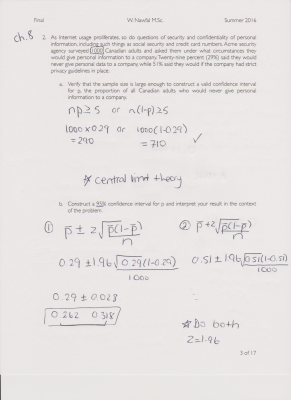 Final W. Nawfal M.Sc. Summer 2016
ch.8
2. As internet usage proliferates, so do questions of security and confidentiality of personal
information, including such things as social security and credit card numbers. Acme security
agency surveyed 1000 Canadian adults and asked them under what circumstances they
would give personal information to a company. Twenty-nine percent (29%) said they would
never give personal data to a company, while 51% said they would if the company had strict
privacy guidelines in place.
a. Verify that the sample size is large enough to construct a valid confidence interval
for p, the proportion of all Canadian adults who would never give personal
information to a company.
np ≥ 5 or n(1-p) ≥ 5
1000 x 0.29 or 1000(1-0.29)
= 290 = 710 ✓
* central limit theory
b. Construct a 95% confidence interval for p and interpret your result in the context
of the problem.
① p̄ ± z √p̄(1-p̄) ② p̄ ± z √p̄(1-p̄)
n n
0.29 ± 1.96 √0.29(1-0.29) 0.51 ± 1.96 √0.51(1-0.51)
1000 1000
0.29 ± 0.028
0.262 0.318
* Do both
z = 1.96
3 of 17